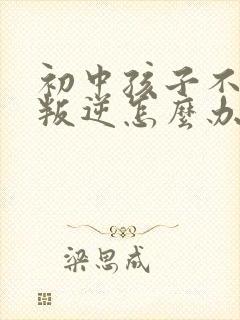 初中孩子不
叛逆怎麼办
梁思成